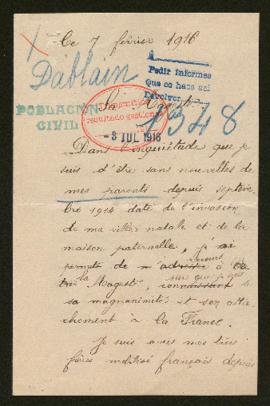 Ce 7 février 1916
Dablain
Pedir informes
Que se hace aci
Devolver
POBLACION
CIVIL
348
-3 JUL 1916
Dans l'inquiétude que je
suis d'être sans nouvelles de
mes parents depuis septem
bre 1914 date de l'invasion
de ma ville natale et de la
maison paternelle, j'ai
permis de m'adresser à
la Majesté, connaissant
sa magnanimité et son atta
chement à la France.
Je suis avec mes
frère mobilisé français depuis